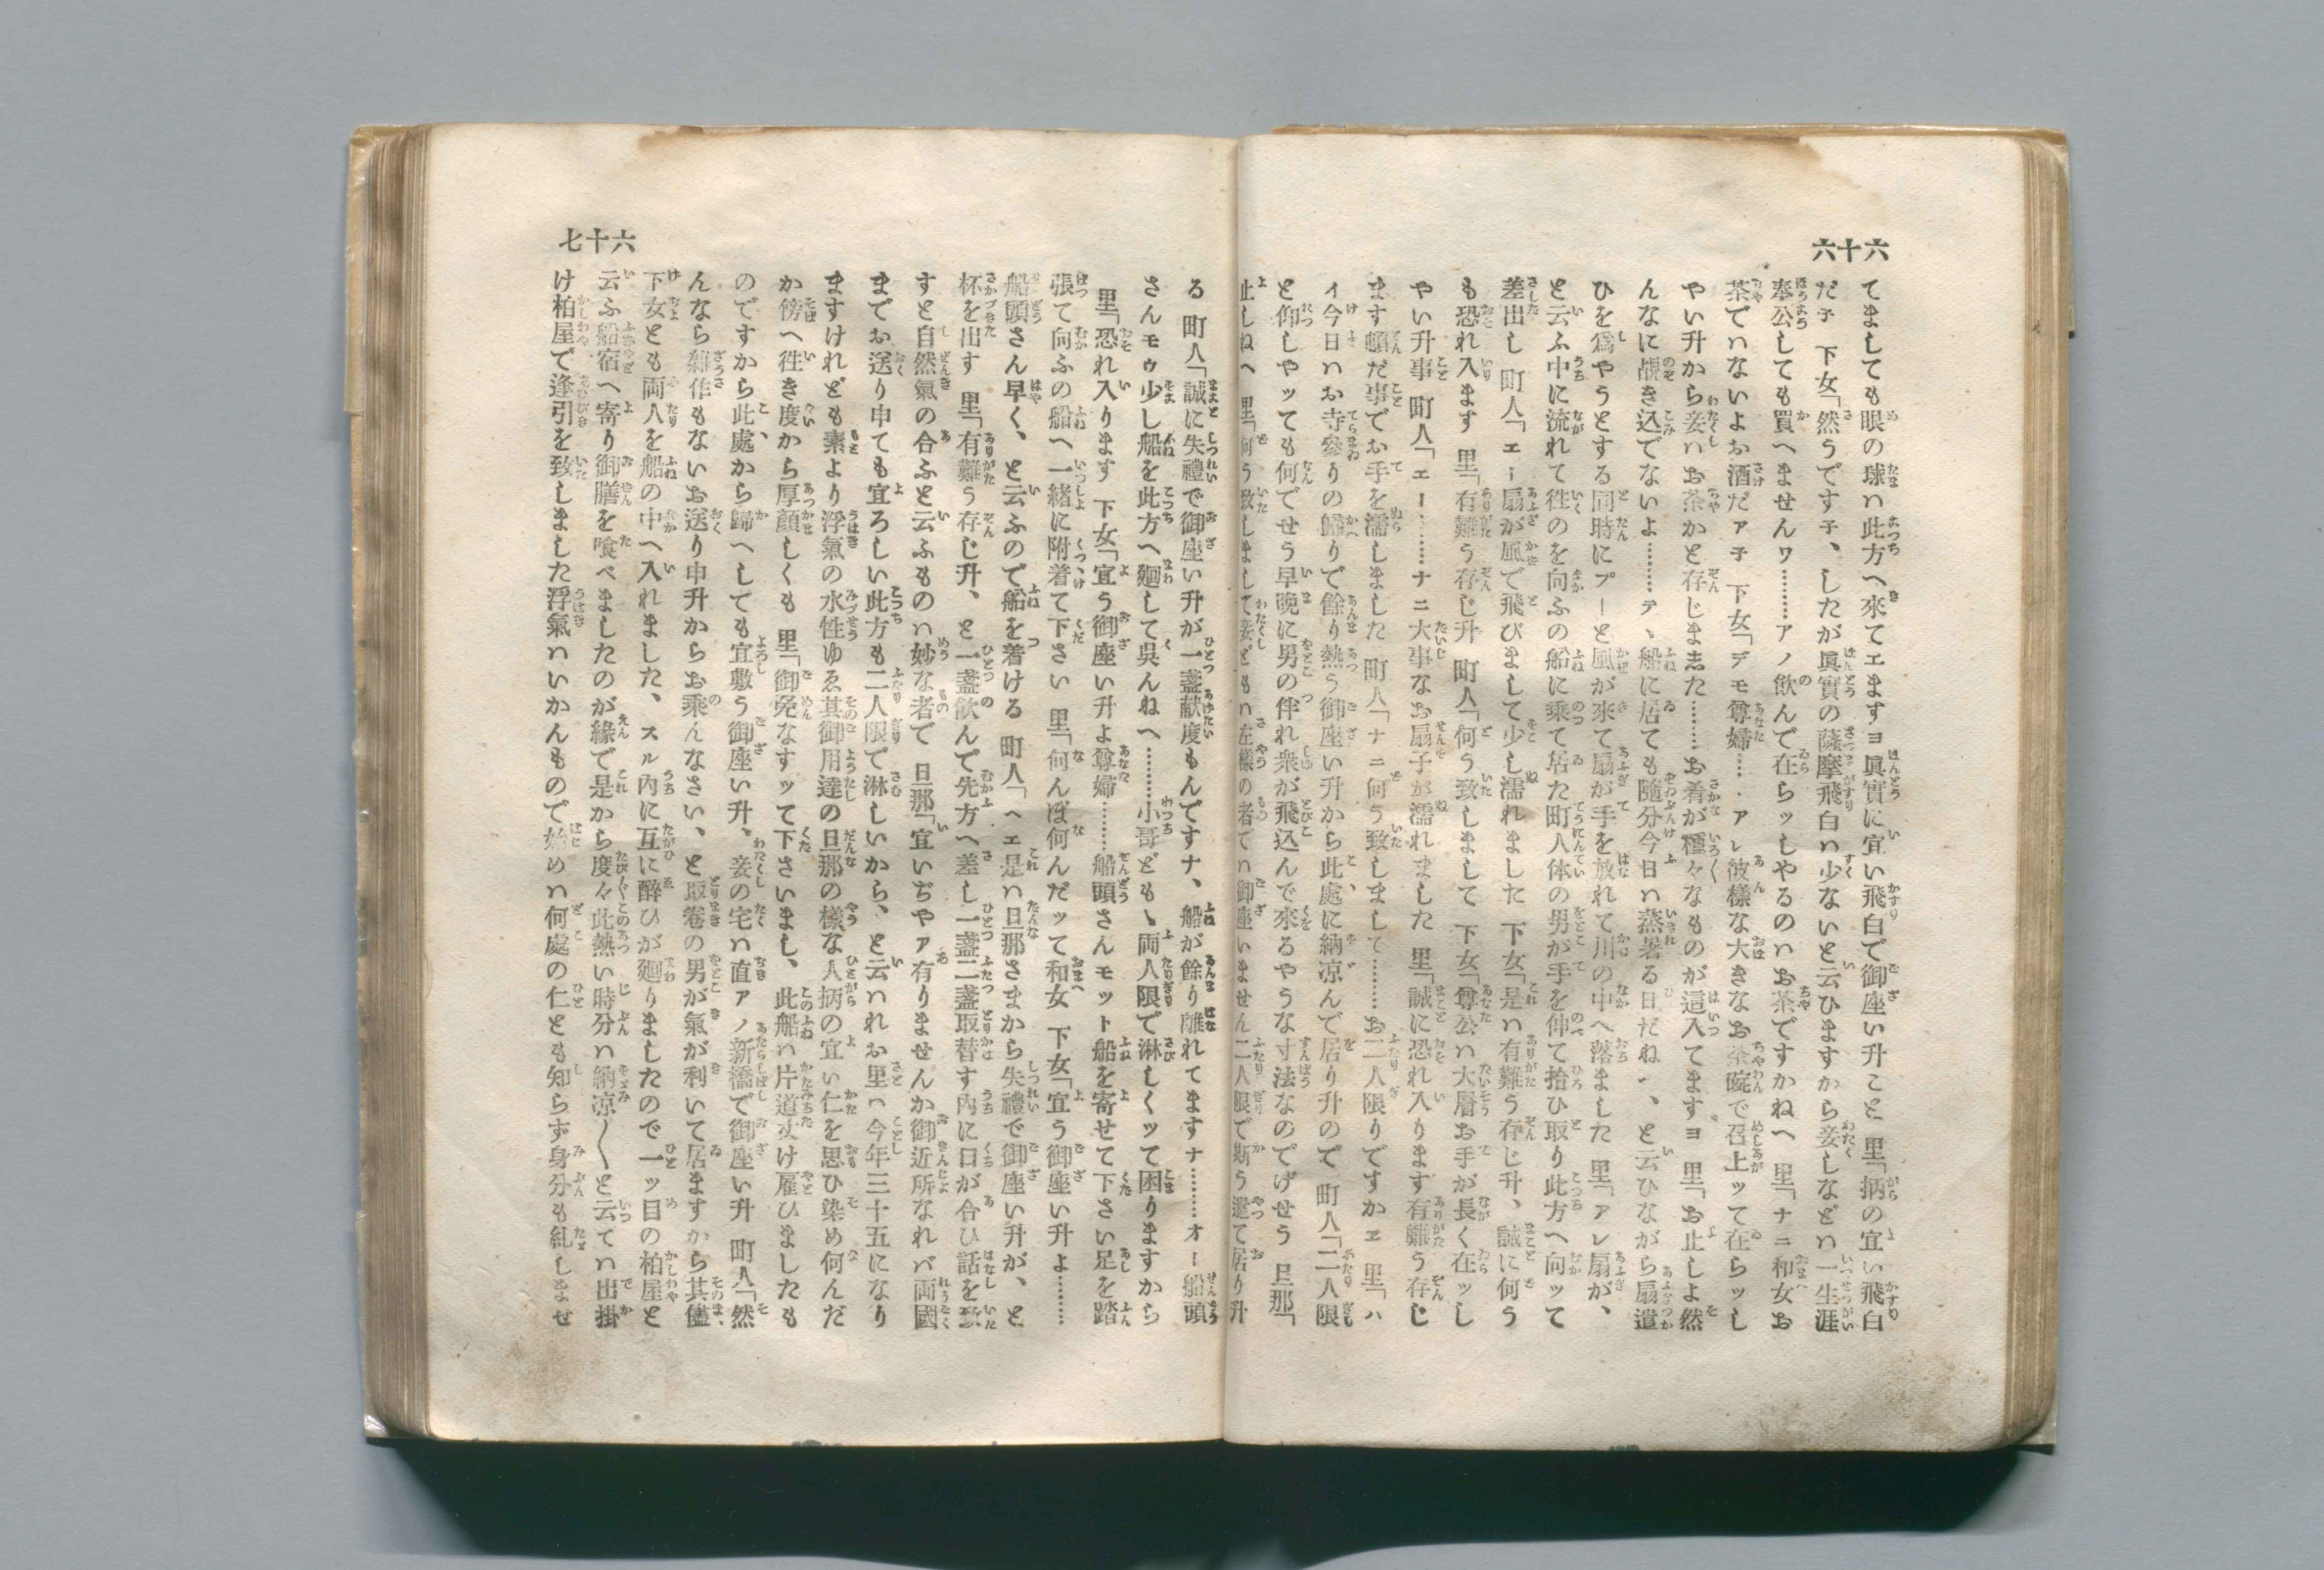 六十六
てましても眼の球ハ此方へ來てエますヨ眞實に宜い飛白で御座い升こと 里「柄の宜い飛白
だ子 下女「然うです子、したが眞實の薩摩飛白ハ少ないと云ひますから妾しなどハ一生涯
奉公しても買へませんワ………アノ飲んで在らッしやるのハお茶ですかねへ 里「ナニ和女お
茶でハないよお酒だアチ 下女「デモ尊婦……アレ彼樣な大きなお茶碗で召上ッて在らッし
やい升から妾ハお茶かと存じました………お肴が種々なものが這入てますヨ 里「お止しよ然
んなに覗き込でないよ………テ、船に居ても隨分今日ハ蒸暑る日だねへ、と云ひながら扇遣
ひを爲やうとする同時にプーと風が來て扇が手を放れて川の中へ落ました 里「アレ扇が、
と云ふ中に流れて徃のを向ふの船に乘て居た町人体の男が手を伸て拾ひ取り此方へ向ッて
差出し 町人「エー扇が風で飛びまして少し濡れました 下女「是ハ有難う存じ升、誠に何う
も恐れ入ます 里「有難う存じ升 町人「何う致しまして 下女「尊公ハ大層お手が長く在ッし
やい升事 町人「エー………ナニ大事なお扇子が濡れました 里「誠に恐れ入ります有難う存じ
ます頓だ事でお手を濡しました 町人「ナニ何う致しまして………お二人限りですかヱ 里「ハ
イ今日ハお寺參りの歸りで餘り熱う御座い升から此處に納凉んで居り升ので 町人「二人限
と仰しやッても何でせう早晩に男の伴れ衆が飛込んで來るやうな寸法なのでげせう 旦那「
止しねへ 里「何う致しまして妾どもハ左樣の者でハ御座いません二人限で斯う遣て居り升
六十七
る 町人「誠に失禮で御座い升が一盞献度もんですナ、船が餘り離れてますナ………オー船頭
さんモゥ少し船を此方へ廻して呉んねへ………小哥どもゝ両人限で淋しくッて困りますから
里「恐れ入ります 下女「宜う御座い升よ尊婦………船頭さんモット船を寄せて下さい足を踏
張て向ふの船へ一緒に附着て下さい 里「何んぼ何んだッて和女 下女「宜う御座い升よ………
船頭さん早く、と云ふので船を着ける 町人「ヘエ是ハ旦那さまから失禮で御座い升が、と
杯を出す 里「有難う存じ升、と一盞飲んで先方へ差し一盞二盞取替す內に口が合ひ話を致
すと自然氣の合ふと云ふものハ妙な者で 旦那「宜いぢやア有りませんか御近所なれバ両國
までお送り申ても宜ろしい此方も二人限で淋しいから、と云ハれお里ハ今年三十五になり
ますけれども素より浮氣の水性ゆゑ其御用達の旦那の樣な人柄の宜い仁を思ひ染め何んだ
か傍へ徃き度から厚顔しくも 里「御免なすッて下さいまし、此船ハ片道丈け雇ひましたも
のですから此處から歸へしても宜敷う御座い升、妾の宅ハ直アノ新橋で御座い升 町人「然
んなら雜作もないお送り申升からお乘んなさい、と取卷の男が氣が利いて居ますから其儘
下女とも両人を船の中へ入れました、スル內に互に醉ひが廻りましたので一ッ目の柏屋と
云ふ船宿へ寄り御膳を喰べましたのが緣で是から度々此熱い時分ハ納凉〳〵と云てハ出掛
け柏屋で逢引を致しました浮氣ハいかんもので始めハ何處の仁とも知らず身分も糺しませ